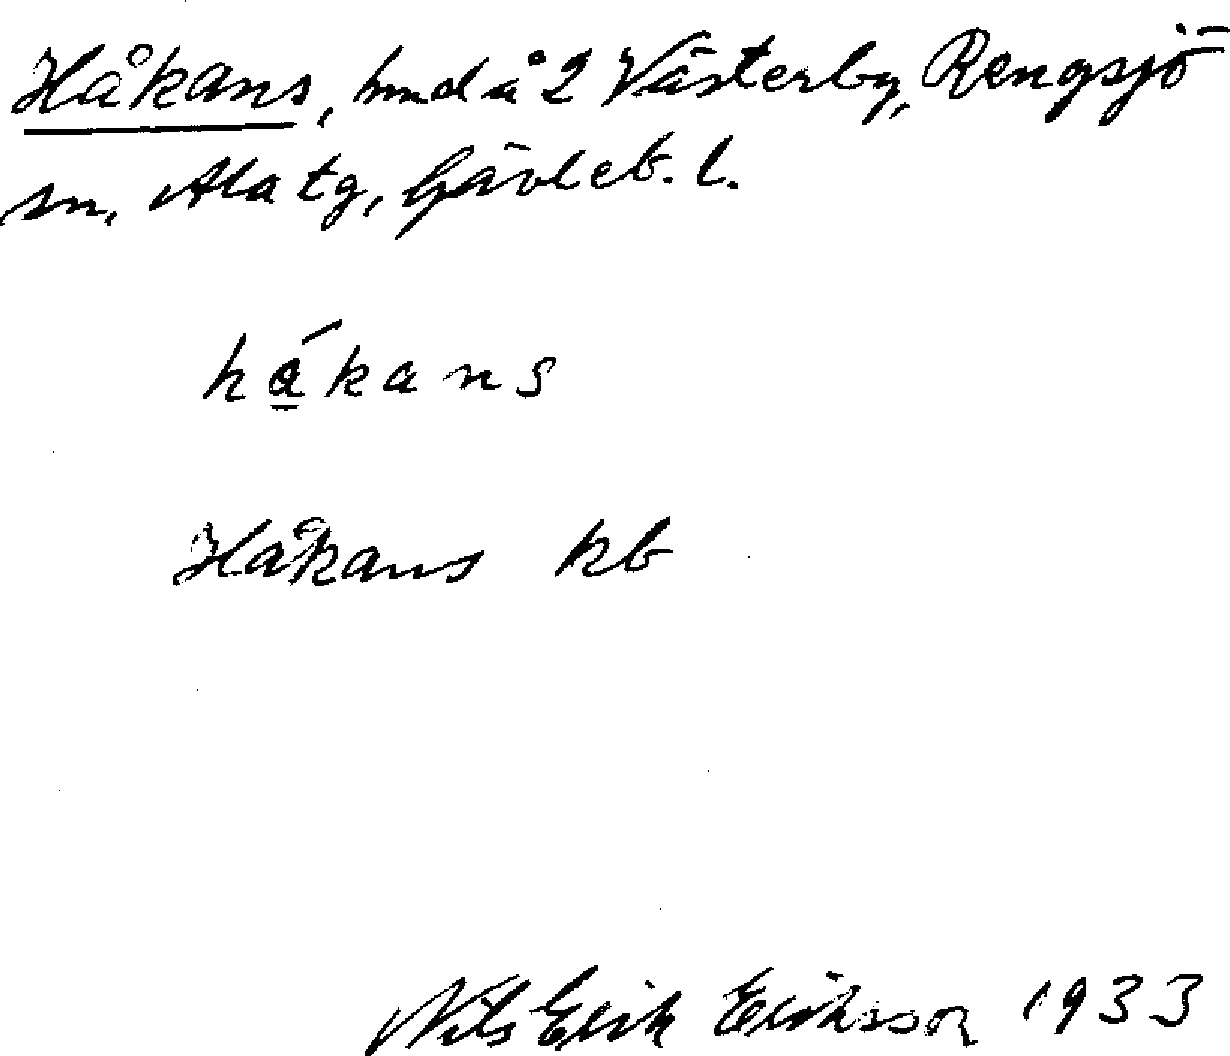 Håkans, hmd å 2 Västerby, Rengsjö
sn, Ala tg, Gävleb. l.
hákans
Håkans kb
Nils Erik Eriksson 1933